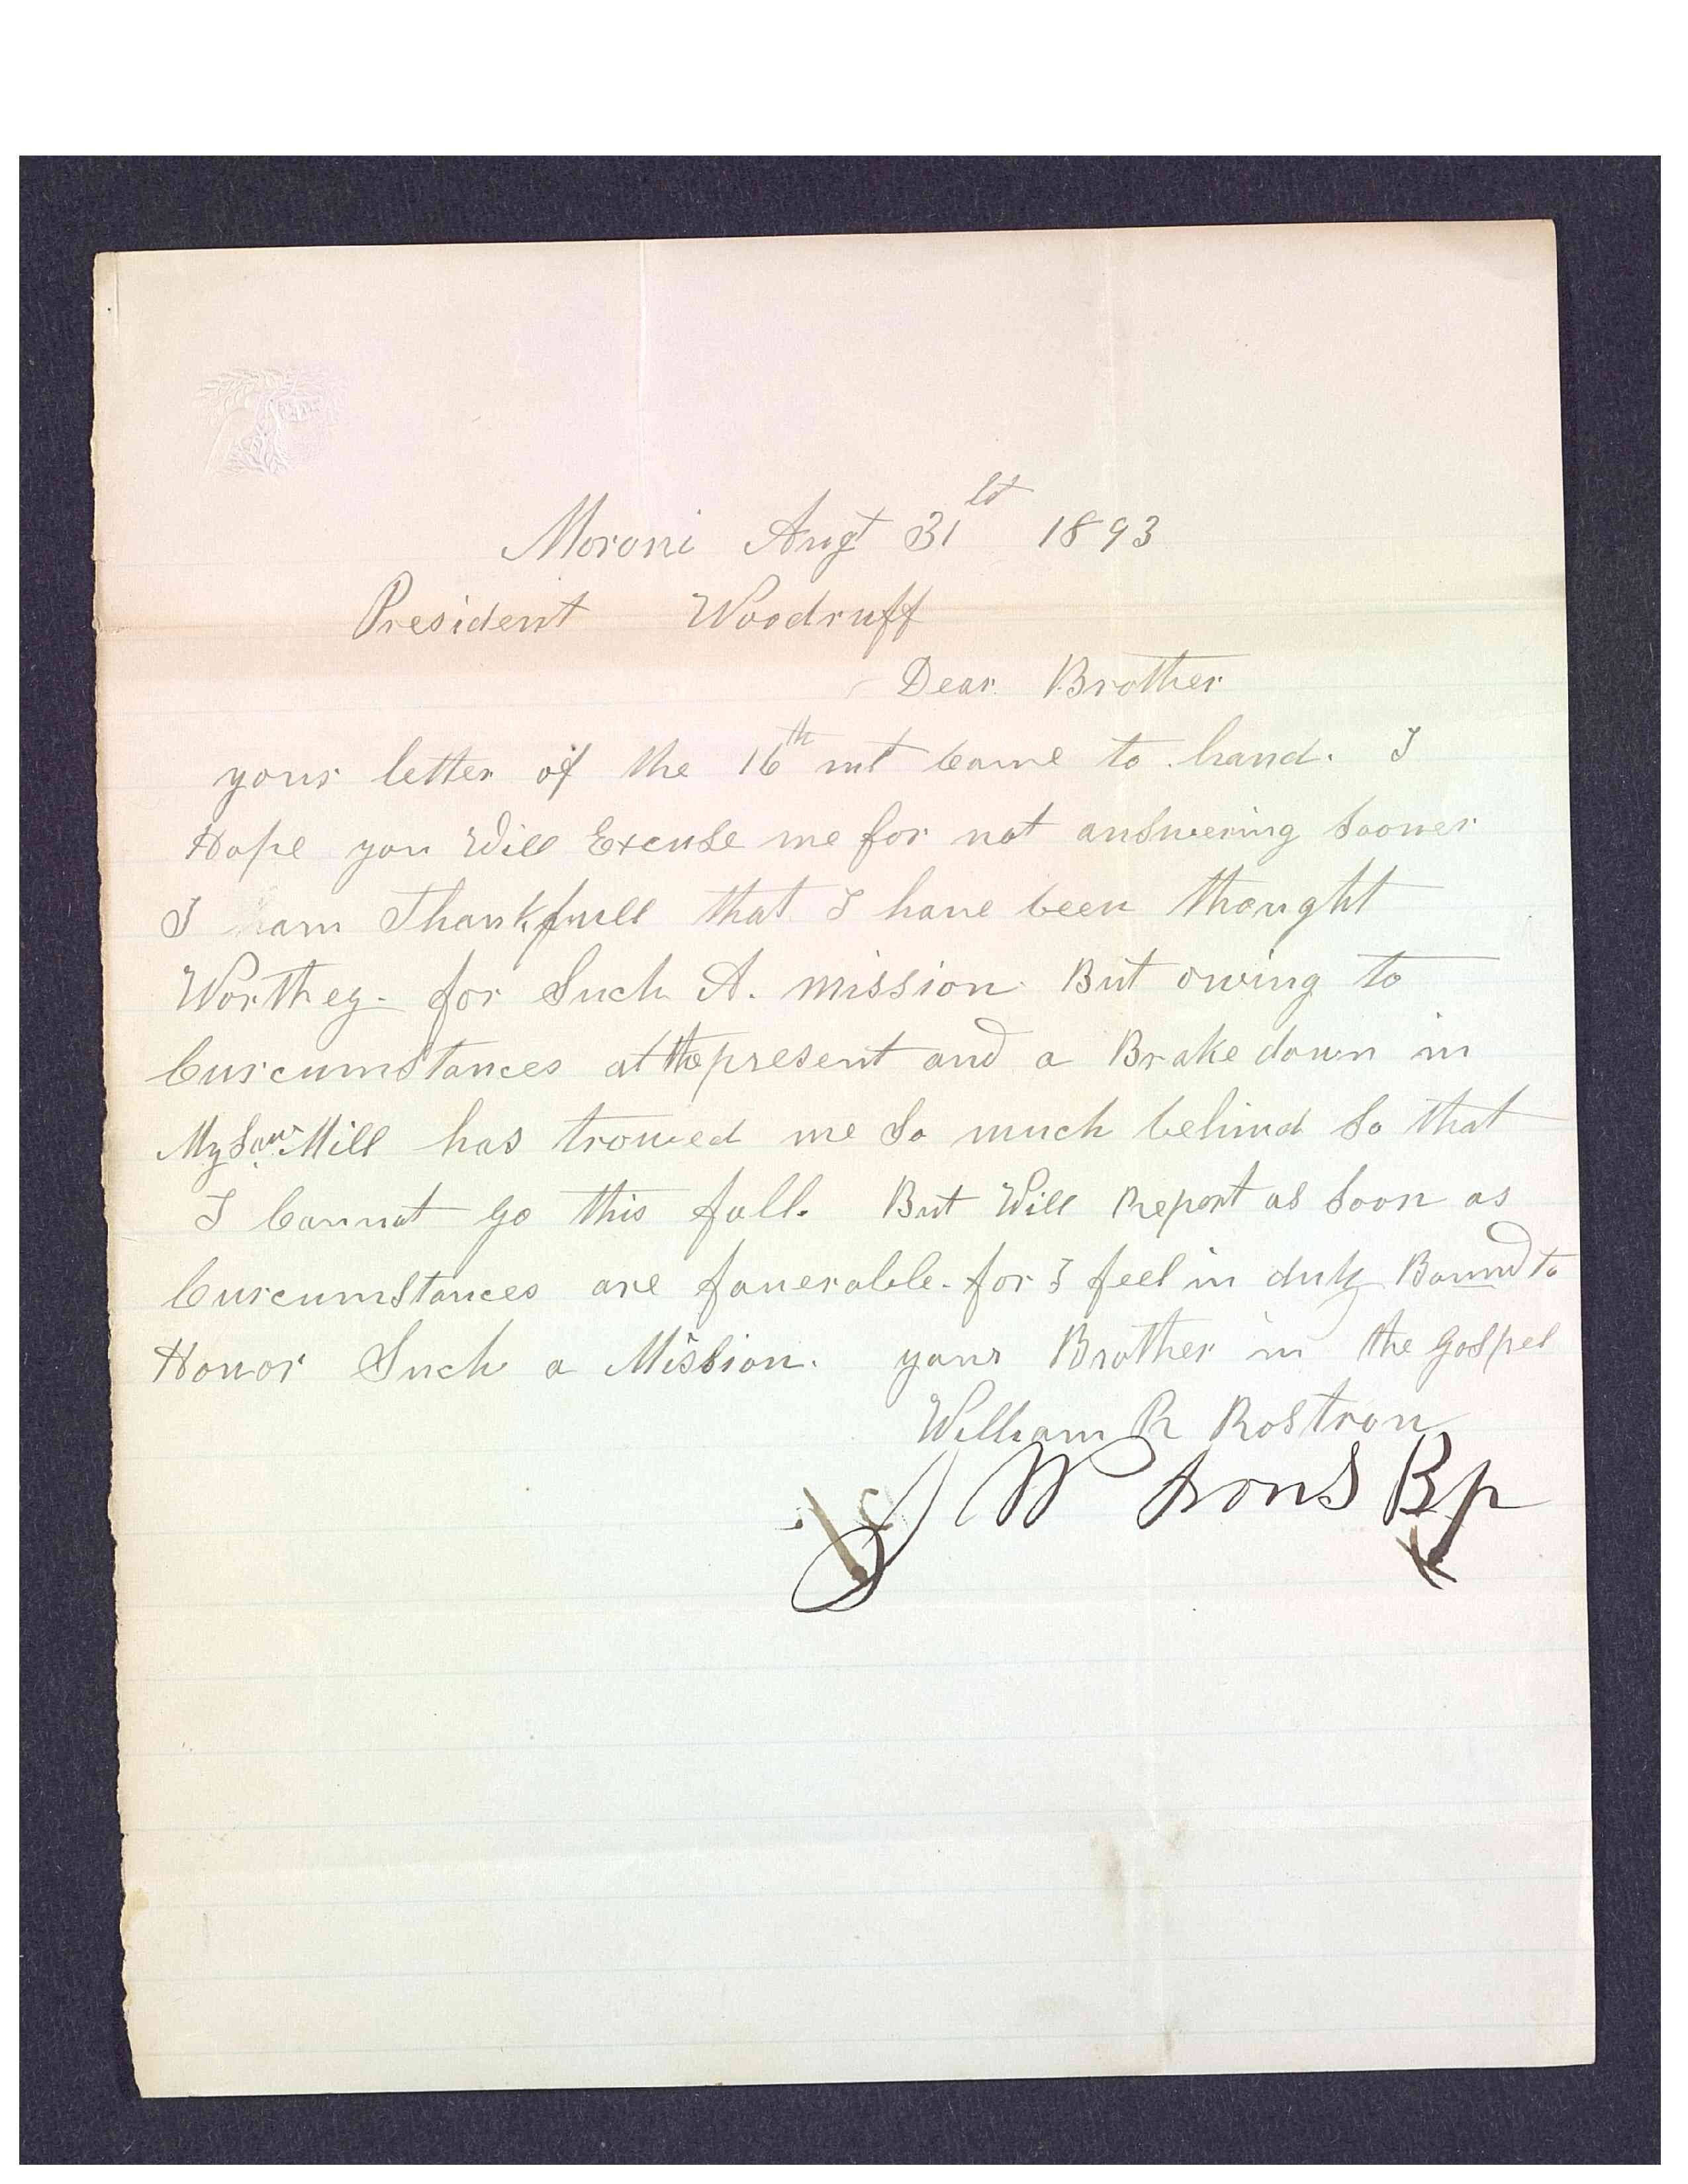 Moroni Augt 31st 1893
President Woodruff
Dear Brother
your letter of the 16th int came to hand. I
Hope you Will Excuse me for not answering Sooner
I am Thankfull that I have been thought
Worthey for Such A. mission. But owing to
Curcumstances at the present and a Brake down in
My Saw Mill has trowed me So much behind So that
I Cannot go this fall. But Will Report as Soon as
Curcumstances are faverable. for I feel in duty Bound to
Honor Such a Mission. your Brother in the Gospel
William R Rostron
J W Irons Bp